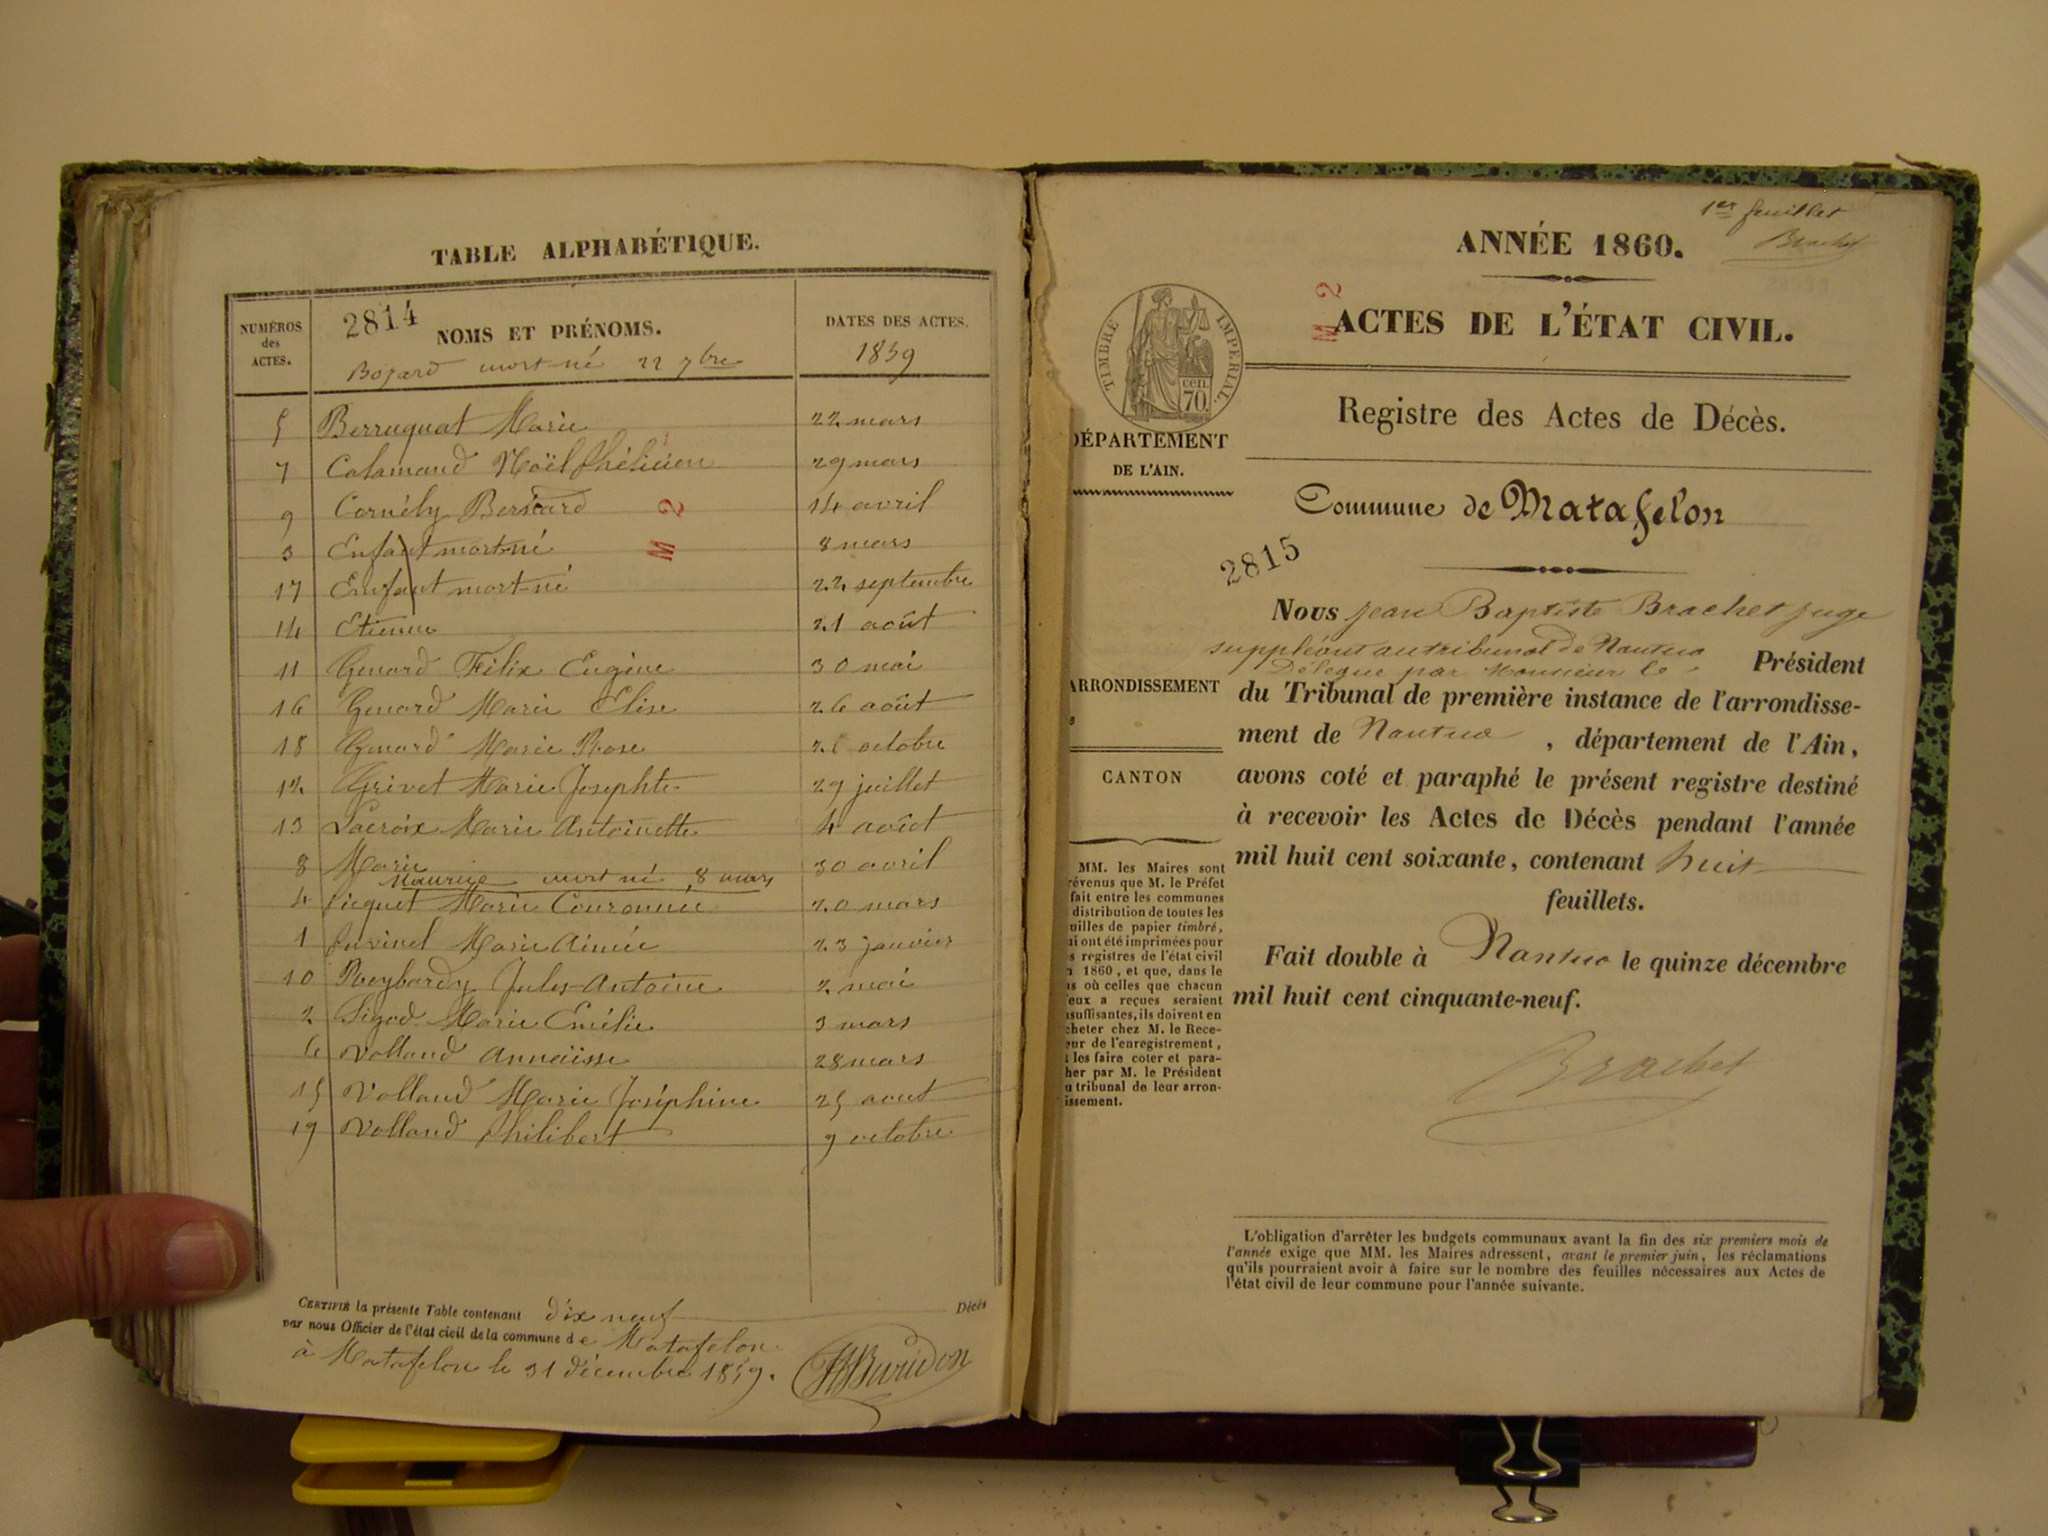 TABLE ALPHABÉTIQUE.
NUMÉROS des ACTES.
2814
NOMS ET PRÉNOMS.
DATES DES ACTES.
Bozard mort-né 22 7bre
1859
5 Berruquat Marie 22 mars
7 Calamand Noël Phélicien 29 mars
9 Cornély Bernard 14 avril
M 2
3 Enfant mort-né 8 mars
17 Enfant mort-né 22 septembre
14 Etienne 21 août
11 Genard Félix Eugène 30 mai
16 Genard Marie Elise 26 août
18 Genard Marie Rose 26 octobre
12 Grivet Marie Josephte 29 juillet
13 Lacroix Marie Antoinette 4 août
8 Marie 30 avril
Maurice mort né 8 mars
4 Picquet Marie Couronnée 20 mars
1 Juvinel Marie Aimée 23 janvier
10 Reybardy Jules Antoine 2 mai
2 Sigod Marie Emélie 3 mars
6 Volland Annaïsse 28 mars
15 Volland Marie Joséphine 25 aout
19 Volland Philibert 9 octobre
CERTIFIÉ la présente Table contenant dix neuf Décès
par nous Officier de l'état civil de la commune de Matafelon
à Matafelon le 31 décembre 1859.
1er feuillet
Brachet
ANNÉE 1860.
M 2
ACTES DE L'ÉTAT CIVIL.
TIMBRE IMPERIAL.
cen.
70.
Registre des Actes de Décès.
DÉPARTEMENT
DE L'AIN.
Commune de Matafelon
2815
Nous jean Baptiste Brachet juge
suppléant au tribunal de Nantua
Délégué par Monsieur le Président
ARRONDISSEMENT
du Tribunal de première instance de l'arrondisse-
ment de Nantua, département de l'Ain,
avons coté et paraphé le présent registre destiné
CANTON
à recevoir les Actes de Décès pendant l'année
mil huit cent soixante, contenant huit
feuillets.
Fait double à Nantua le quinze décembre
mil huit cent cinquante-neuf.
Brachet
MM. les Maires sont
révenus que M. le Préfet
fait entre les communes
distribution de toutes les
uilles de papier timbré,
ui ont été imprimées pour
s registres de l'état civil
1860, et que, dans le
as où celles que chacun
'eux a reçues seraient
nsuffisantes, ils doivent en
cheter chez M. le Rece-
eur de l'enregistrement,
t les faire coter et para-
her par M. le Président
u tribunal de leur arron-
issement.
L'obligation d'arrêter les budgets communaux avant la fin des six premiers mois de
l'année exige que MM. les Maires adressent, avant le premier juin, les réclamations
qu'ils pourraient avoir à faire sur le nombre des feuilles nécessaires aux Actes de
l'état civil de leur commune pour l'année suivante.